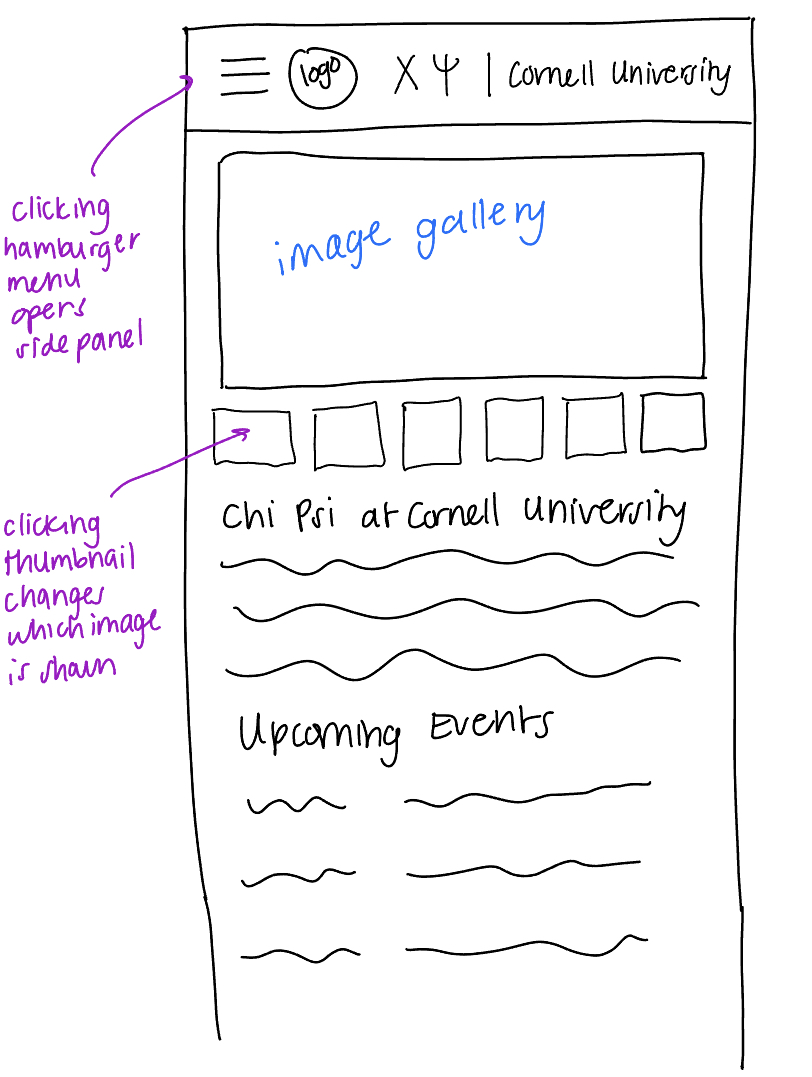 logo
Χ Ψ | Cornell University
image gallery
clicking
hamburger
menu
opens
side panel
clicking
thumbnail
changes
which image
is shown
Chi Psi at Cornell University
Upcoming Events